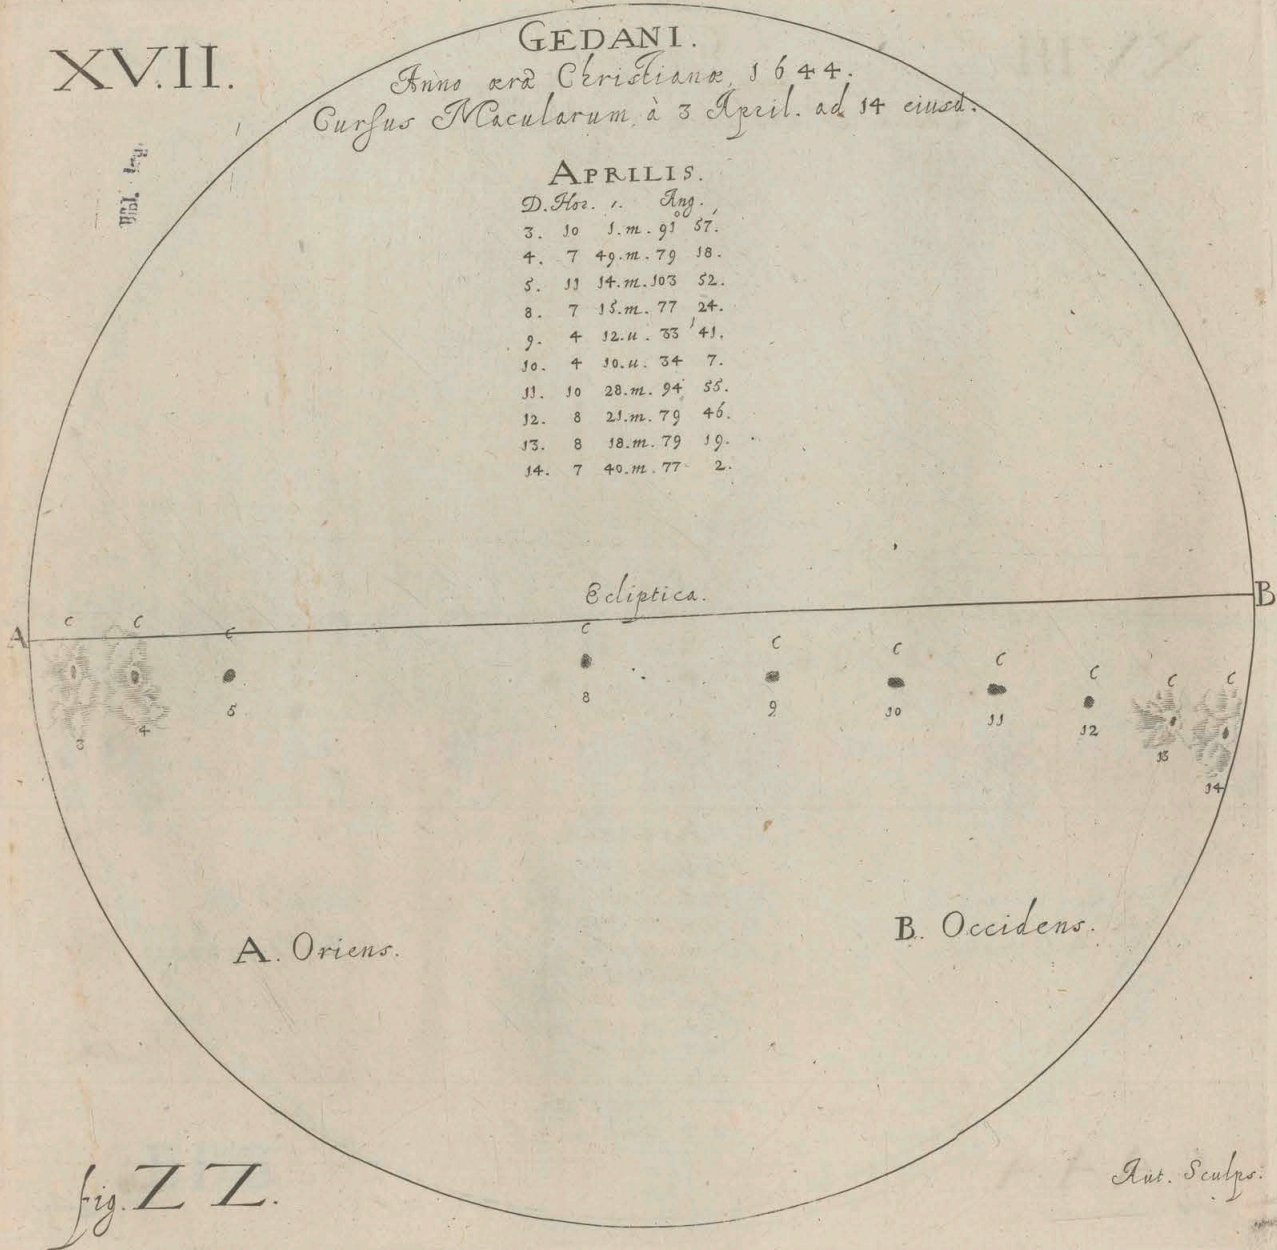 XVII.
GEDANI.
Anno æræ Christianæ, 1644.
Cursus Macularum, à 3 April. ad 14 eiusd.
APRILIS.
D. Hor. ,. Ang.
3. 10 1.m. 91° 57'.
4. 7 49.m. 79 18.
5. 11 14.m. 103 52.
8. 7 15.m. 77 24.
9. 4 12.u. 33 41.
10. 4 10.u. 34 7.
11. 10 28.m. 94 55.
12. 8 21.m. 79 46.
13. 8 18.m. 79 19.
14. 7 40.m. 77 2.
Ecliptica.
A B
C C C C C C C C C C
3 4 5 8 9 10 11 12 13 14
A. Oriens. B. Occidens.
fig. ZZ. Aut. Sculps.